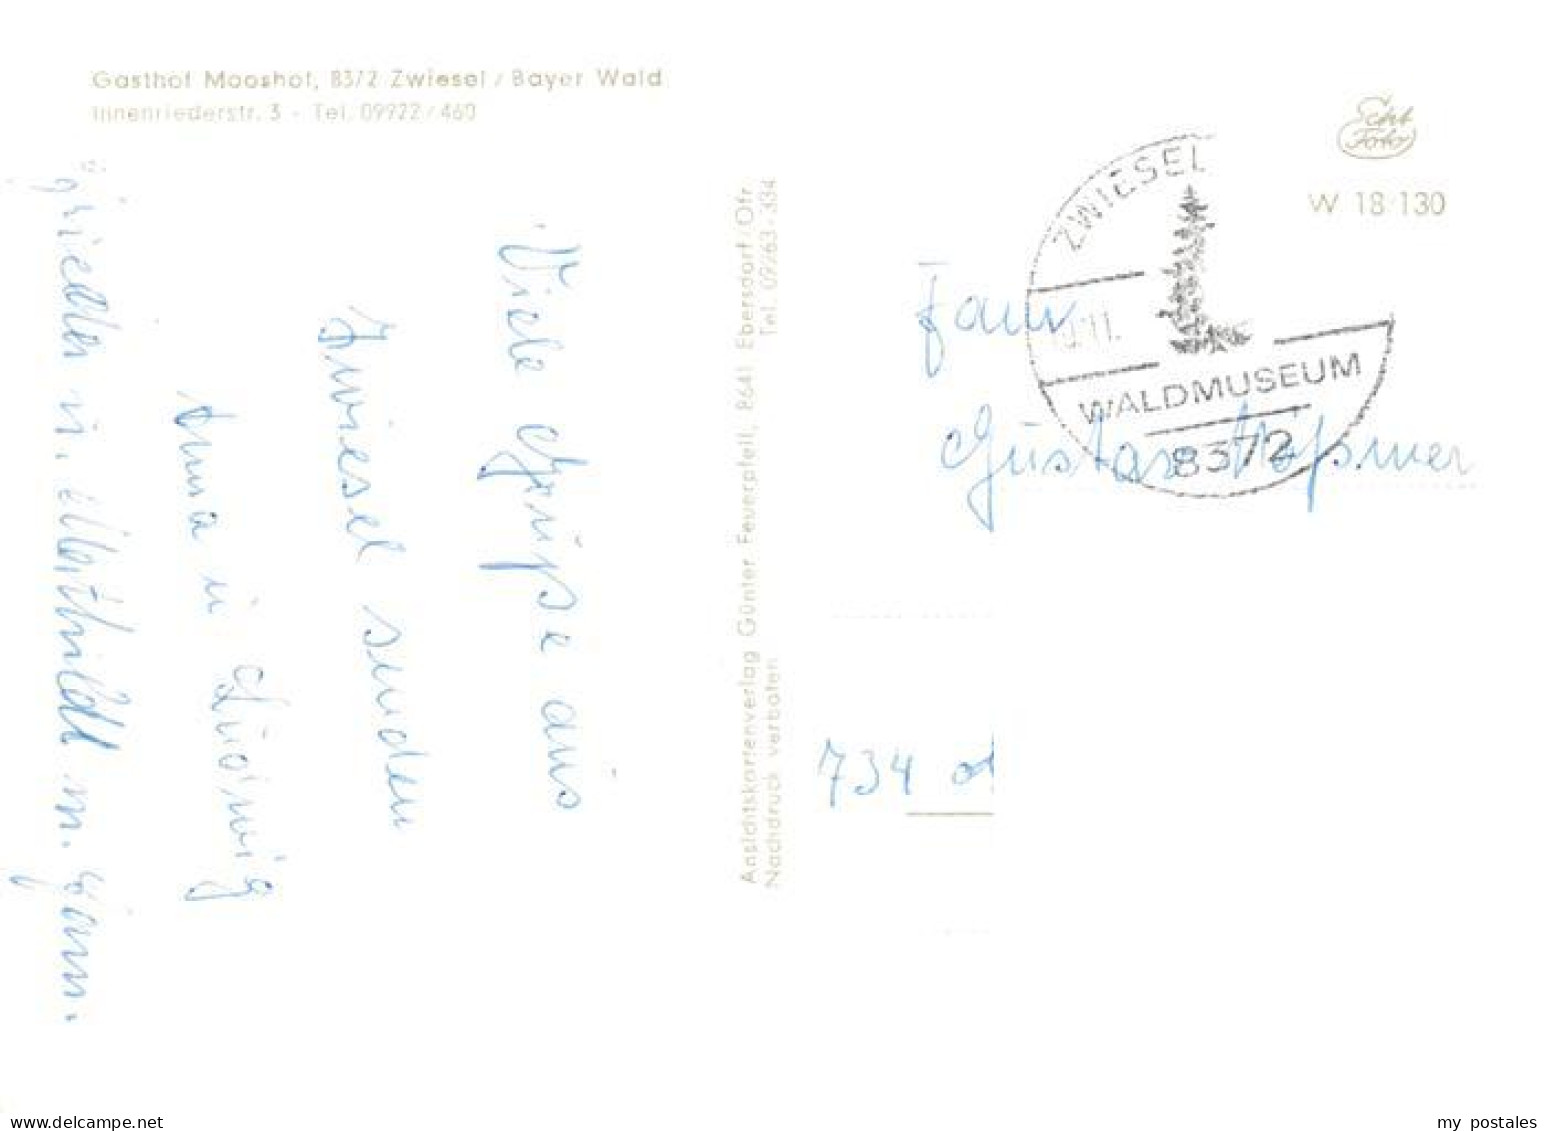 Gasthof Mooshof, 8372 Zwiesel / Bayer Wald
Innenriederstr. 3 - Tel. 09922 / 460
Echt
Foto
W 18 130
ZWIESEL
.11.
WALDMUSEUM
8372
Fam
Gustav
734
Ansichtskartenverlag Günter Feuerpfeil, 8641 Ebersdorf/Ofr
Tel. 09263-334
Nachdruck verboten
Viele Grüße aus
Zwiesel senden
Anna u Ludwig
m.
www.delcampe.net
my_postales